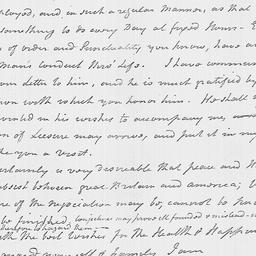 ployed, and in such a regular Manner, as that
something to do every Day at fixed Hours-
of order and Punctuality you know, have an
Man's Conduct thro' Life. I have commun
letter to him, and he is much gratified by
ion with which you honor him. He shall
in his wishes to accompany me,
n of Leisure may arrive, and put it in my
a visit.
is very desireable that peace and
subsist between great Britain and america; b
of the negociation may be, cannot be
be finished, conjectures may prove ill founded & mislead
therefore to hazard them-
with the best wishes for the Health & Happin
yourself & Family I am